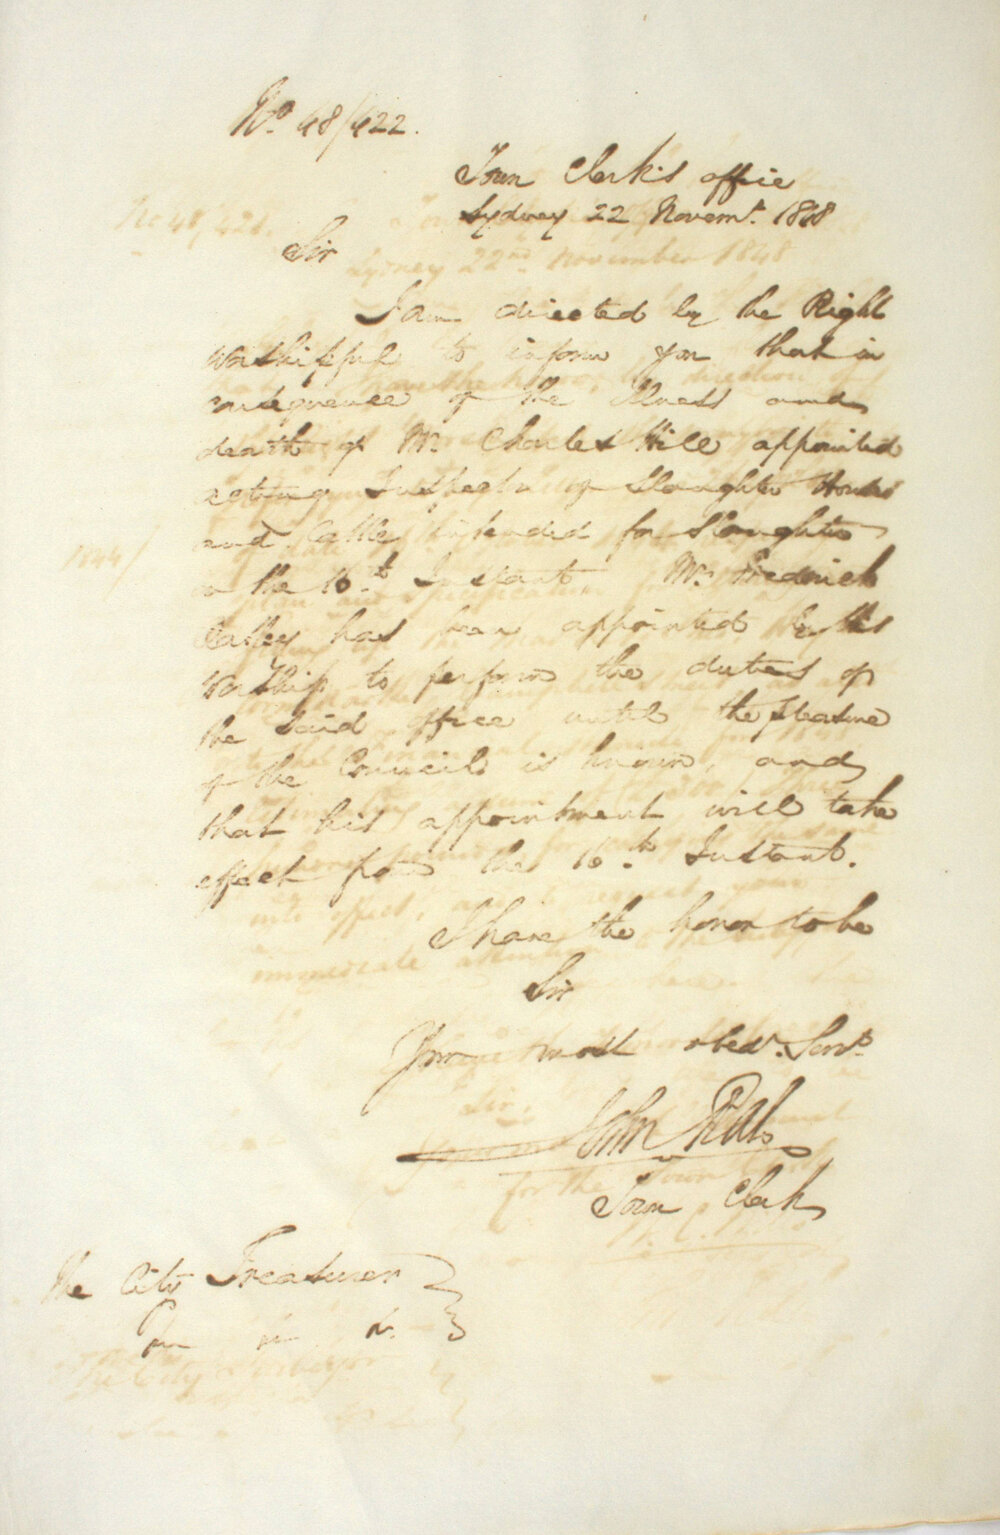 No. 48/422.
Town Clerk's office
Sydney 22 Novemr. 1848
Sir
I am directed by the Right
Worshipful to inform you that in
consequence of the illness and
death of Mr. Charles Hill appointed
acting Inspector of Slaughter Houses
and Cattle intended for Slaughter
on the 16th Instant Mr. Frederick
Catley has been appointed by His
Worship to perform the duties of
the said office until the pleasure
of the Council is known, and
that his appointment will take
effect from the 16th Instant.
I have the honor to be
Sir
Your most obedt. Servt.
John
Town Clerk
The City Treasurer